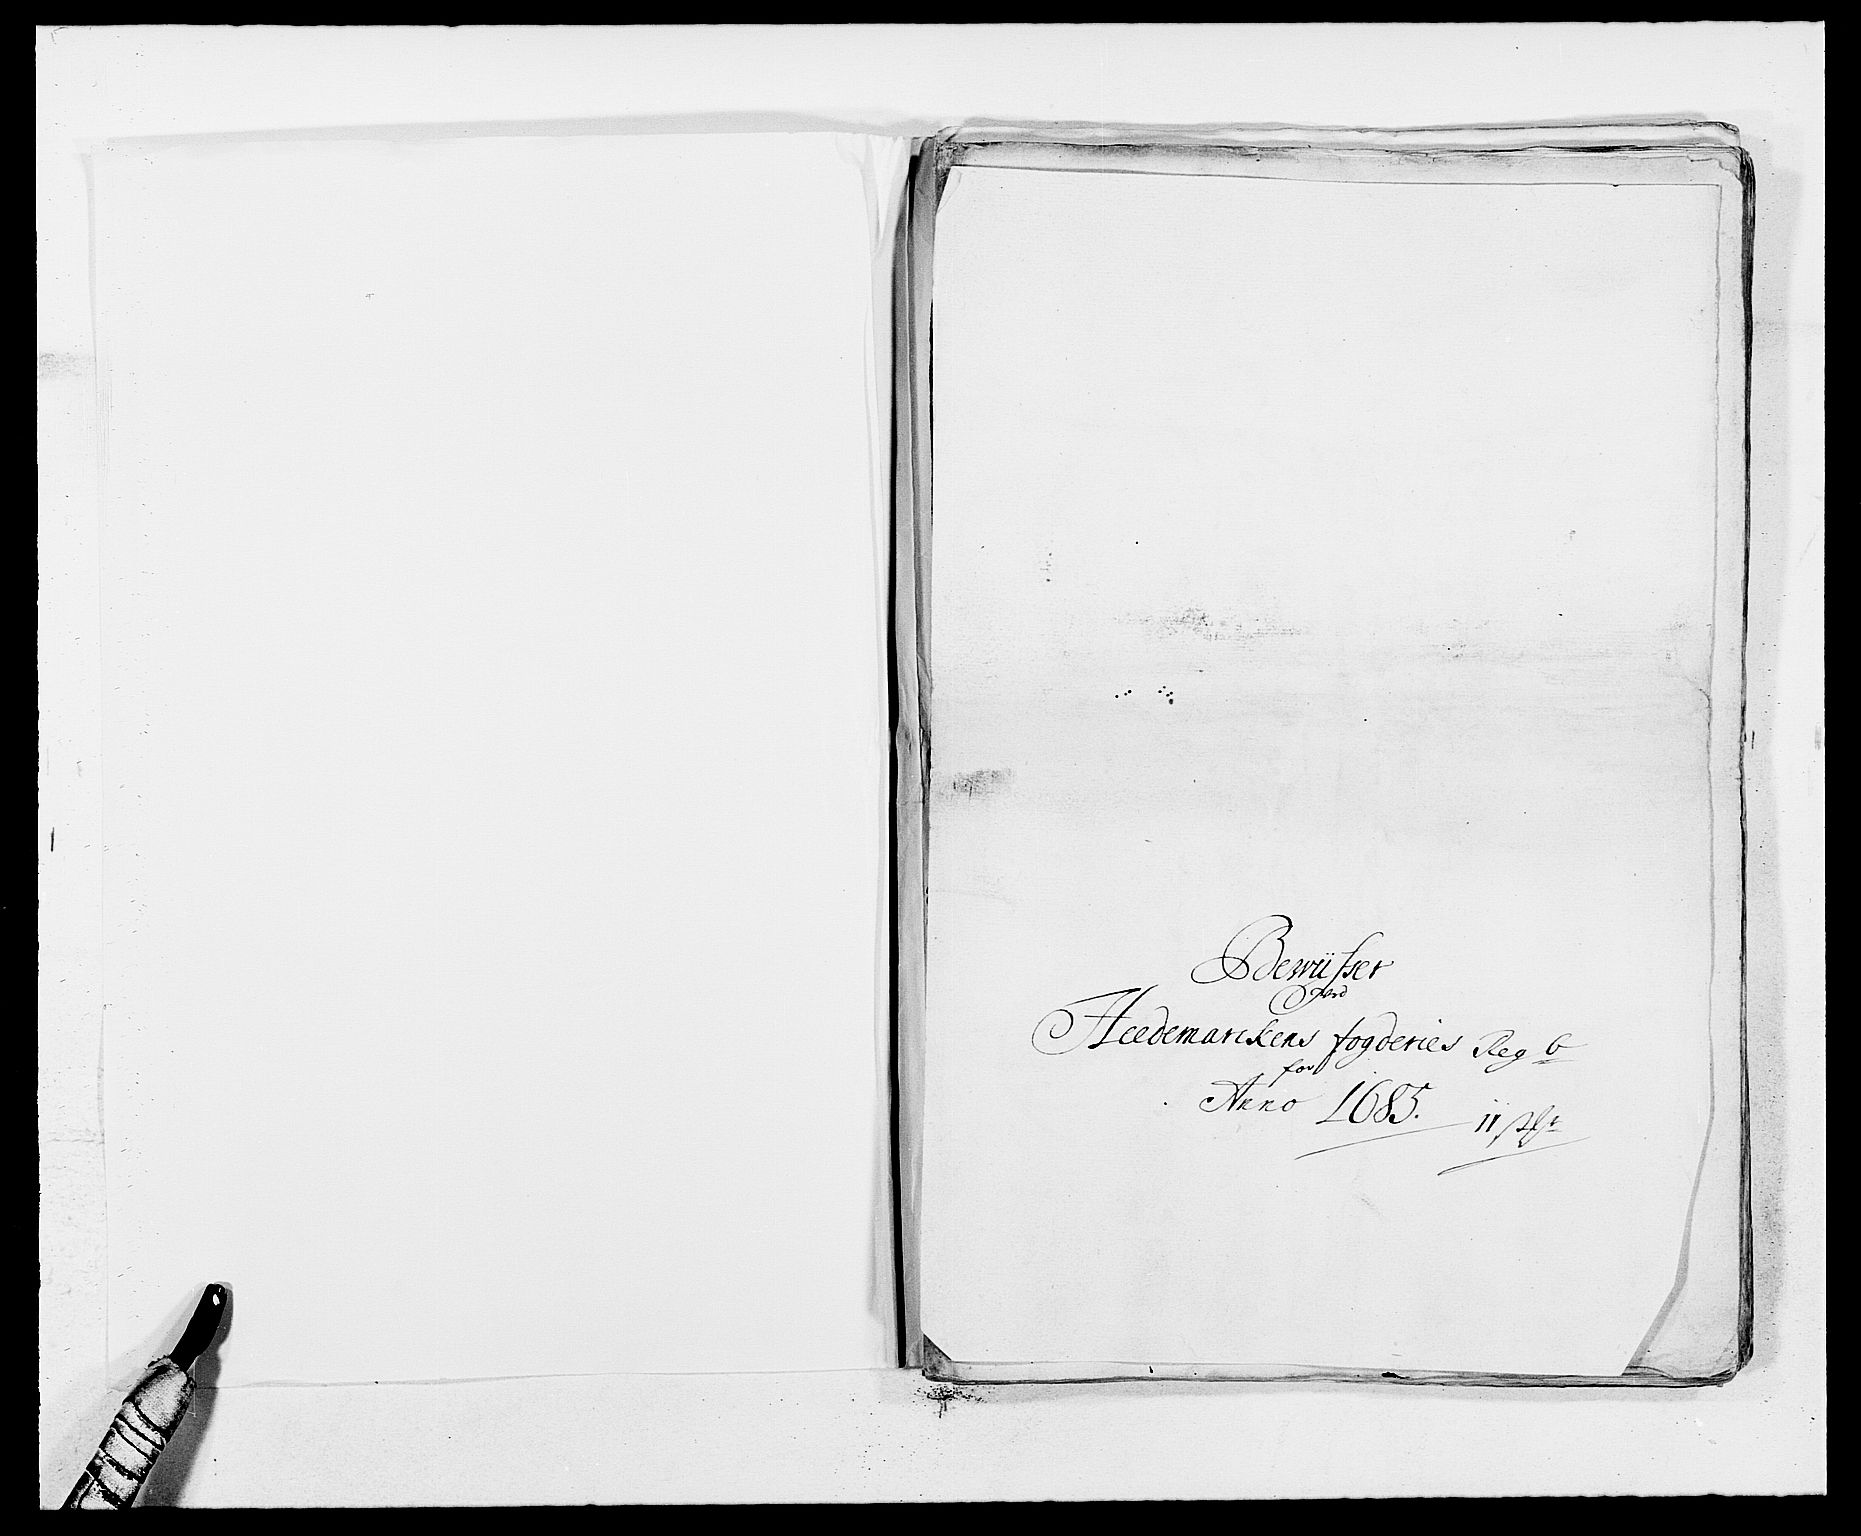 Bewiisser
Hedemarckens fogderies Reg b
for
Anno 1685. 11